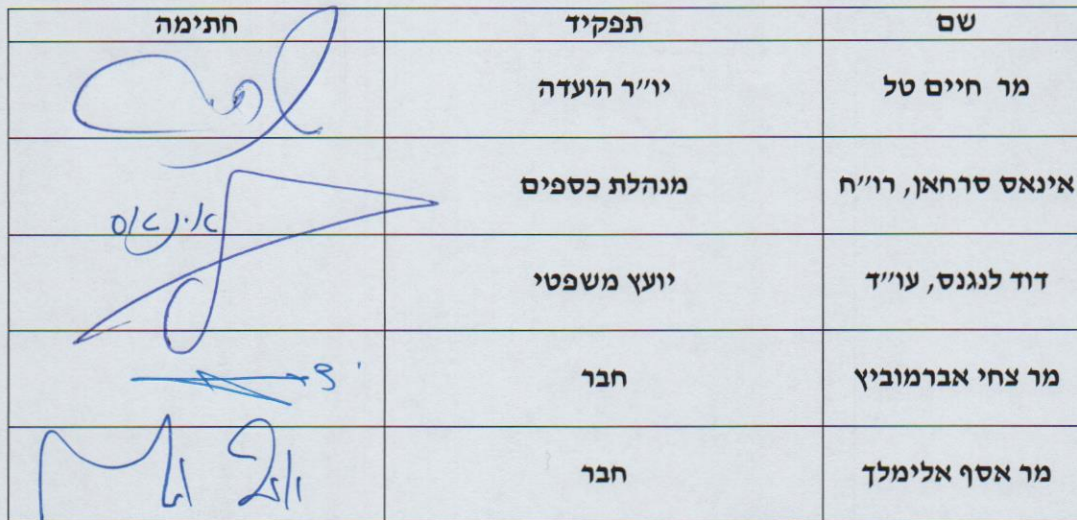 שם תפקיד חתימה
מר חיים טל יו״ר הועדה
אינאס סרחאן, רו״ח מנהלת כספים אינאס
דוד לנגנס, עו״ד יועץ משפטי
מר צחי אברמוביץ חבר
מר אסף אלימלך חבר